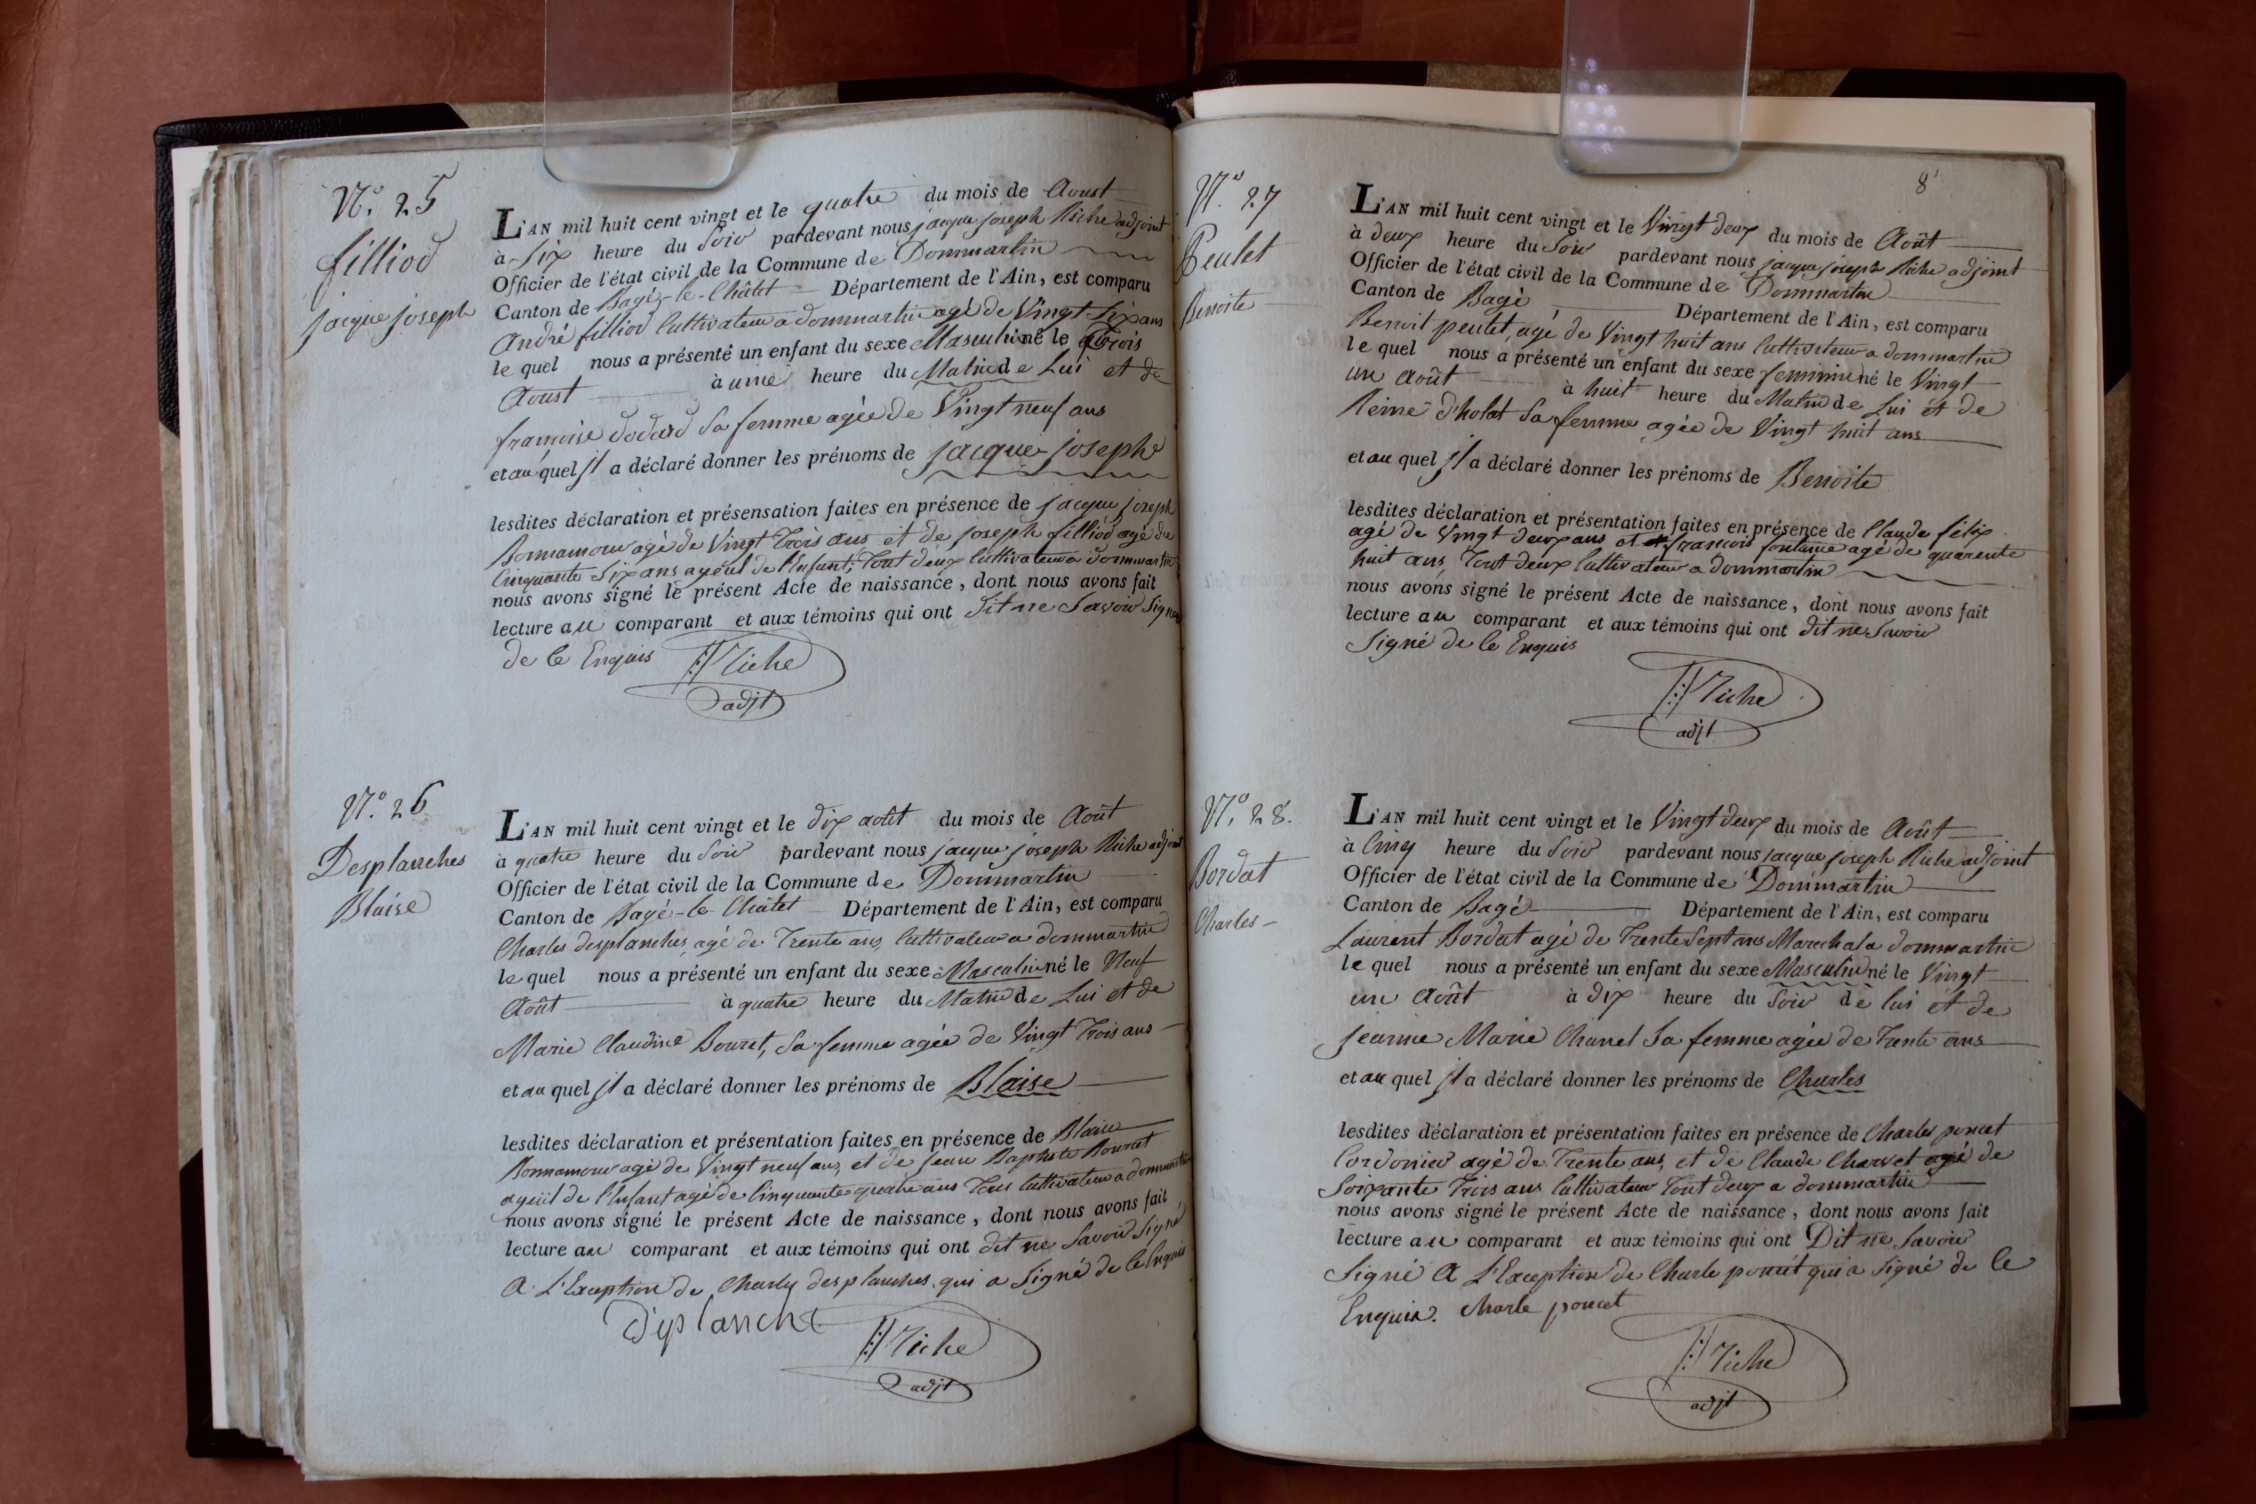 N.º 25
filliod
jacque joseph
L'AN mil huit cent vingt et le quatre du mois de Aoust
à Six heure du Soir pardevant nous jacque joseph Riche adjoint
Officier de l'état civil de la Commune de Dommartin
Canton de Bagé-le-Châtel Département de l'Ain, est comparu
André filliod Cultivateur a dommartin agé de Vingt-Six ans
le quel nous a présenté un enfant du sexe Masculin né le Trois
Aoust à une heure du Matin de Lui et de
françoise dodard Sa femme agée de Vingt neuf ans
et au quel jl a déclaré donner les prénoms de jacque joseph
lesdites déclaration et présensation faites en présence de jacque joseph
Bonnamour agé de Vingt Trois ans et de joseph filliod agé de
Cinquante Six ans ayeul de l'Enfant, Tout deux Cultivateur a dommartin
nous avons signé le présent Acte de naissance, dont nous avons fait
lecture au comparant et aux témoins qui ont Dit ne Savoir Signer
de Ce Enquis Riche
adjt
N.º 26
Desplanches
Blaise
L'AN mil huit cent vingt et le dix août du mois de Août
à quatre heure du Soir pardevant nous jacque joseph Riche adjoint
Officier de l'état civil de la Commune de Dommartin
Canton de Bagé-le-Châtel Département de l'Ain, est comparu
Charles desplanches, agé de Trente ans, Cultivateur a dommartin
le quel nous a présenté un enfant du sexe Masculin né le Neuf
Août à quatre heure du Matin de Lui et de
Marie Claudine Bouret, Sa femme agée de Vingt Trois ans
et au quel jl a déclaré donner les prénoms de Blaise
lesdites déclaration et présentation faites en présence de Blaise
Bonnamour agé de Vingt neuf ans, et de jean Baptiste Bouret
ayeul de l'Enfant agé de Cinquante quatre ans Tous Cultivateur a dommartin
nous avons signé le présent Acte de naissance, dont nous avons fait
lecture au comparant et aux témoins qui ont dit ne Savoir Signé
A L'Exception de Charles desplanches qui a Signé de Ce Enquis
Deplanche Riche
adjt
8
N.º 27
Peulet
Benoite
L'AN mil huit cent vingt et le Vingt deux du mois de Août
à deux heure du Soir pardevant nous jacque joseph Riche adjoint
Officier de l'état civil de la Commune de Dommartin
Canton de Bagé Département de l'Ain, est comparu
Benoit peulet, agé de Vingt huit ans Cultivateur a dommartin
le quel nous a présenté un enfant du sexe feminin né le Vingt
un Août à huit heure du Matin de Lui et de
Reine d'holat Sa femme agée de Vingt huit ans
et au quel jl a déclaré donner les prénoms de Benoite
lesdites déclaration et présentation faites en présence de Claude félix
agé de Vingt deux ans et françois fontaine agé de quarente
huit ans, Tout deux Cultivateur a dommartin
nous avons signé le présent Acte de naissance, dont nous avons fait
lecture au comparant et aux témoins qui ont dit ne Savoir
Signé de Ce Enquis
Riche
adjt
N.º 28.
Bordat
Charles
L'AN mil huit cent vingt et le Vingt deux du mois de Août
à Cinq heure du Soir pardevant nous jacque joseph Riche adjoint
Officier de l'état civil de la Commune de Dommartin
Canton de Bagé Département de l'Ain, est comparu
Laurent Bordat agé de Trente Sept ans Marechal a dommartin
le quel nous a présenté un enfant du sexe Masculin né le Vingt
un Août à dix heure du Soir de lui et de
jeanne Marie Charvet Sa femme agée de Trente ans
et au quel jl a déclaré donner les prénoms de Charles
lesdites déclaration et présentation faites en présence de Charles poncet
Cordonier agé de Trente ans, et de Claude Charvet agé de
Soixante Trois ans Cultivateur Tout deux a dommartin
nous avons signé le présent Acte de naissance, dont nous avons fait
lecture au comparant et aux témoins qui ont Dit ne Savoir
Signé A L'Exception de Charle poncet qui a Signé de Ce
Enquis. Charle poncet
Riche
adjt